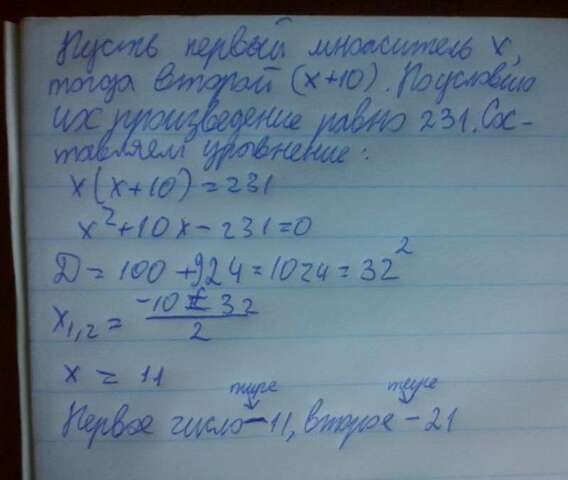 Пусть первый множитель x,
тогда второй (x+10). По условию
их произведение равно 231. Сос-
тавляем уравнение:
x(x+10)=231
x²+10x-231=0
D=100+924=1024=32²
x₁,₂=(-10±32)/2
x=11
тире тире
Первое число-11, второе-21